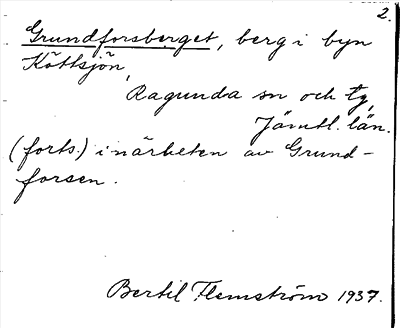 2.
Grundforsberget, berg i byn
Köttsjön,
Ragunda sn och tg,
Jämtl. län.
(forts.) i närheten av Grund-
forsen.
Bertil Flemström 1937.